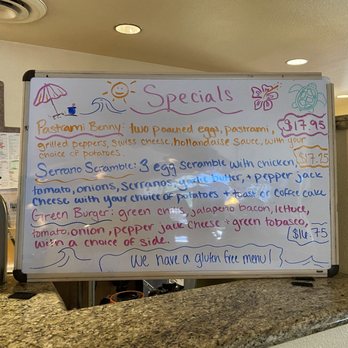 Specials
Pastrami Benny: two poached eggs, pastrami, $17.95
grilled peppers, swiss cheese, hollandaise sauce, with your
choice of potatoes.
Serrano Scramble: 3 egg scramble with chicken, $17.25
tomato, onions, serranos, garlic butter, + pepper jack
cheese with your choice of potatoes + toast or coffee cake
Green Burger: green chilis, jalapeño bacon, lettuce,
tomato, onion, pepper jack cheese + green tobasco,
with a choice of side. $16.75
We have a gluten free menu!